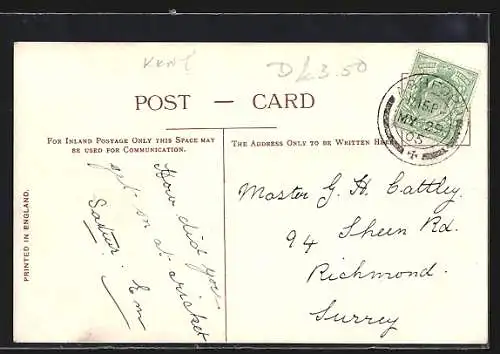 KENT
Dk 3.50
POST — CARD
FOR INLAND POSTAGE ONLY THIS SPACE MAY
BE USED FOR COMMUNICATION.
THE ADDRESS ONLY TO BE WRITTEN HERE
How did you
get on at cricket
Satur: Em
Master G. H. Cattley.
94 Sheen Rd.
Richmond.
Surrey
PRINTED IN ENGLAND.
MY 25
05